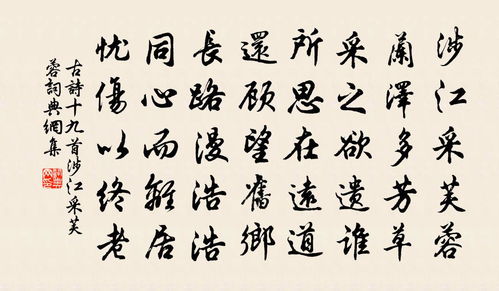 涉江采芙蓉
蘭澤多芳草
采之欲遺誰
所思在遠道
還顧望舊鄉
長路漫浩浩
同心而離居
忧傷以终老
古詩十九首涉江采芙
蓉詞典網集